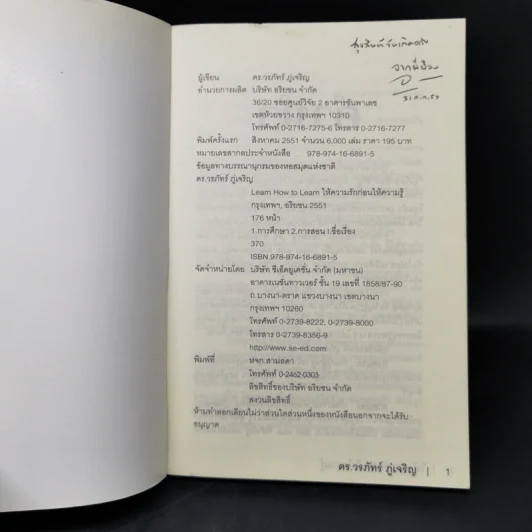 สุขสันต์วันเกิดครับ
๓๑ ก.ค. ๕๒
ผู้เขียน ดร.วรภัทร์ ภู่เจริญ
อำนวยการผลิต บริษัท อริยชน จำกัด
36/20 ซอยศูนย์วิจัย 2 อาคารชันพาเลซ
เขตห้วยขวาง กรุงเทพฯ 10310
โทรศัพท์ 0-2716-7275-6 โทรสาร 0-2716-7277
พิมพ์ครั้งแรก สิงหาคม 2551 จำนวน 6,000 เล่ม ราคา 195 บาท
หมายเลขสากลประจำหนังสือ 978-974-16-6891-5
ข้อมูลทางบรรณานุกรมของหอสมุดแห่งชาติ
ดร.วรภัทร์ ภู่เจริญ
Learn How to Learn ให้ความรักก่อนให้ความรู้
กรุงเทพฯ, อริยชน 2551
176 หน้า
1.การศึกษา 2.การสอน I.ชื่อเรื่อง
370
ISBN 978-974-16-6891-5
จัดจำหน่ายโดย บริษัท ซีเอ็ดยูเคชั่น จำกัด (มหาชน)
อาคารเนชั่นทาวเวอร์ ชั้น 19 เลขที่ 1858/87-90
ถ.บางนา-ตราด แขวงบางนา เขตบางนา
กรุงเทพฯ 10260
โทรศัพท์ 0-2739-8222, 0-2739-8000
โทรสาร 0-2739-8356-9
http://www.se-ed.com
พิมพ์ที่ หจก.สามลดา
โทรศัพท์ 0-2462-0303
ลิขสิทธิ์ของบริษัท อริยชน จำกัด
สงวนลิขสิทธิ์
ห้ามทำลอกเลียนไม่ว่าส่วนใดส่วนหนึ่งของหนังสือนอกจากจะได้รับ
อนุญาต
ดร.วรภัทร์ ภู่เจริญ | 1